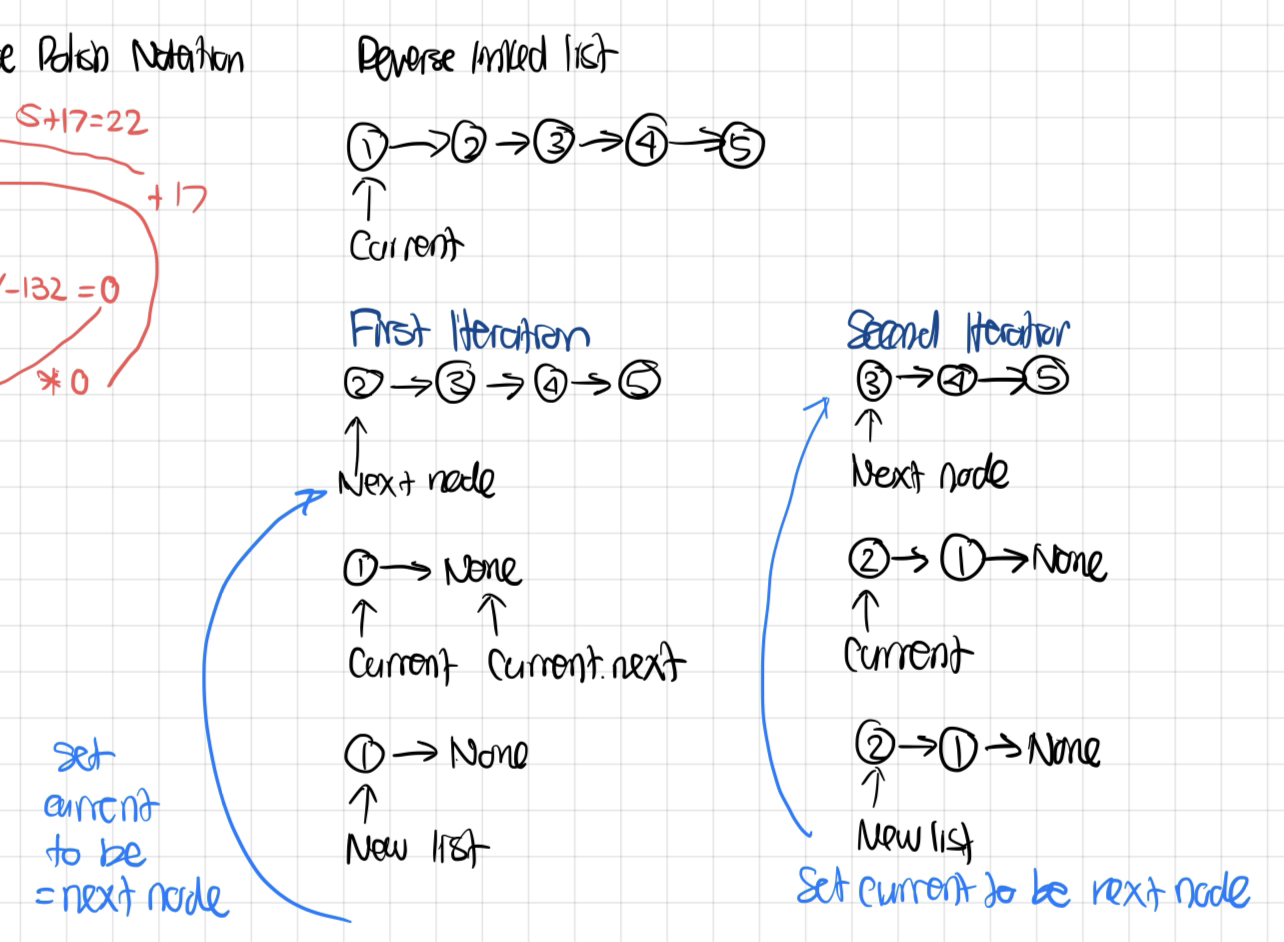 e Polish Notation
5+17=22
+17
-132 =0
*0
Reverse linked list
1 → 2 → 3 → 4 → 5
↑
Current
First Iteration
2 → 3 → 4 → 5
↑
Next node
1 → None
↑ ↑
Current Current.next
1 → None
↑
New list
set
current
to be
=next node
Second Iteration
3 → 4 → 5
↑
Next node
2 → 1 → None
↑
Current
2 → 1 → None
↑
New list
Set current to be next node